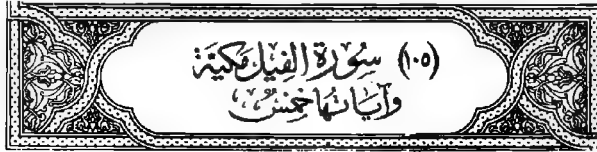 (١٠٥) سورة الفيل مكية
وآياتها خمس